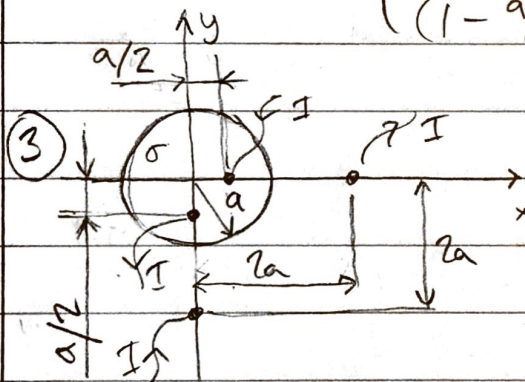 (1 - a
y
a/2
I
I
3
σ
a
x
I
2a
2a
a/2
I